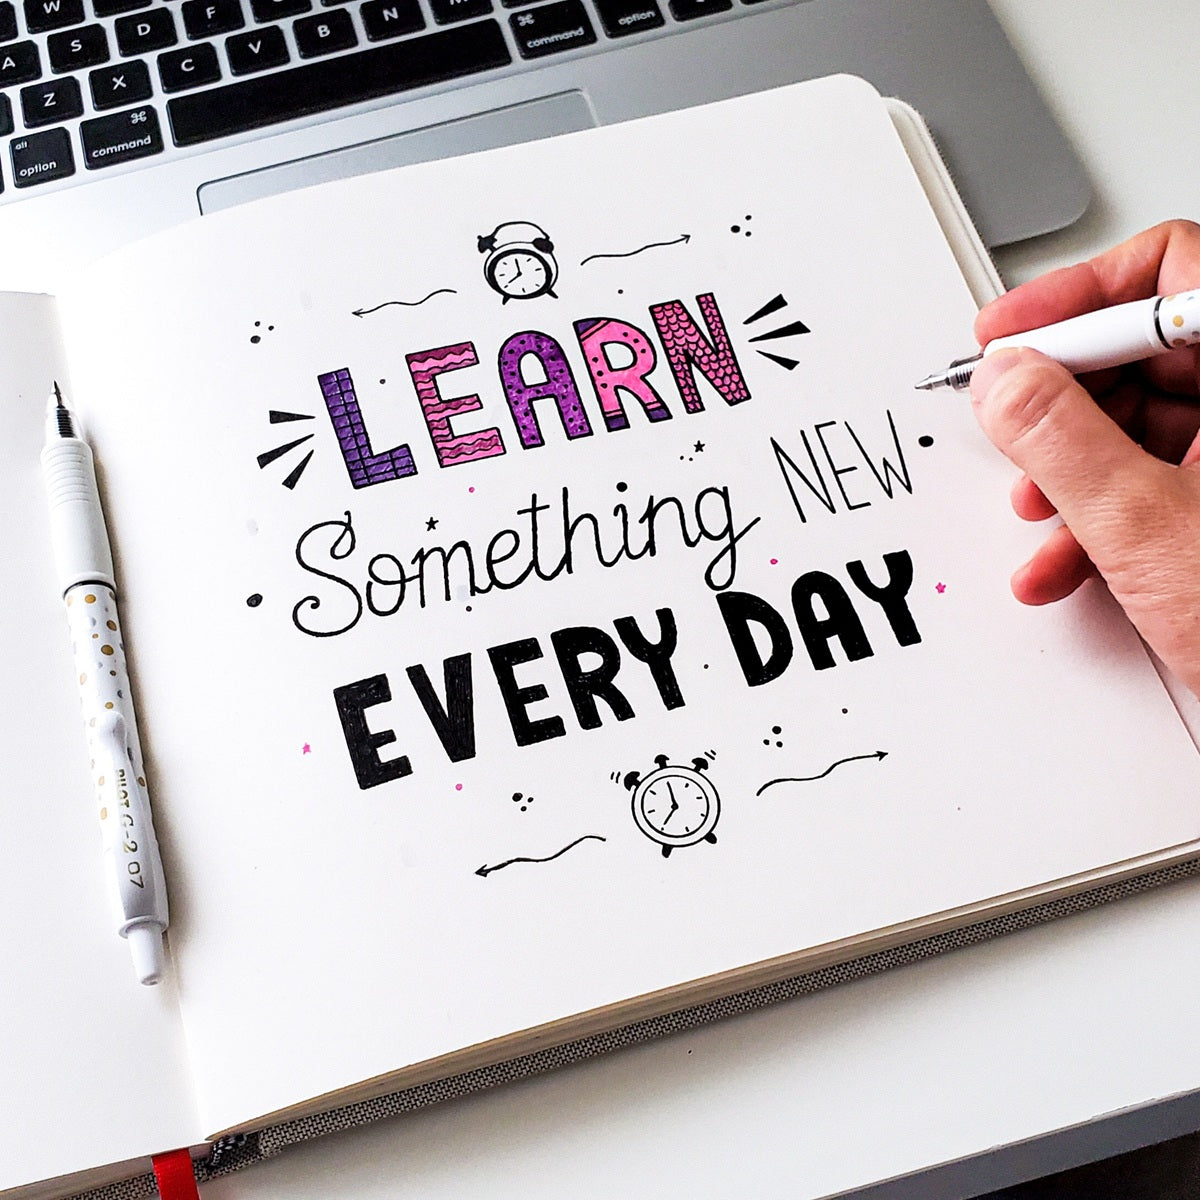 W
A S D F
Z X C V B N M
alt option ⌘ command ⌘ command option
LEARN
Something NEW
EVERY DAY
PILOT G-2 07